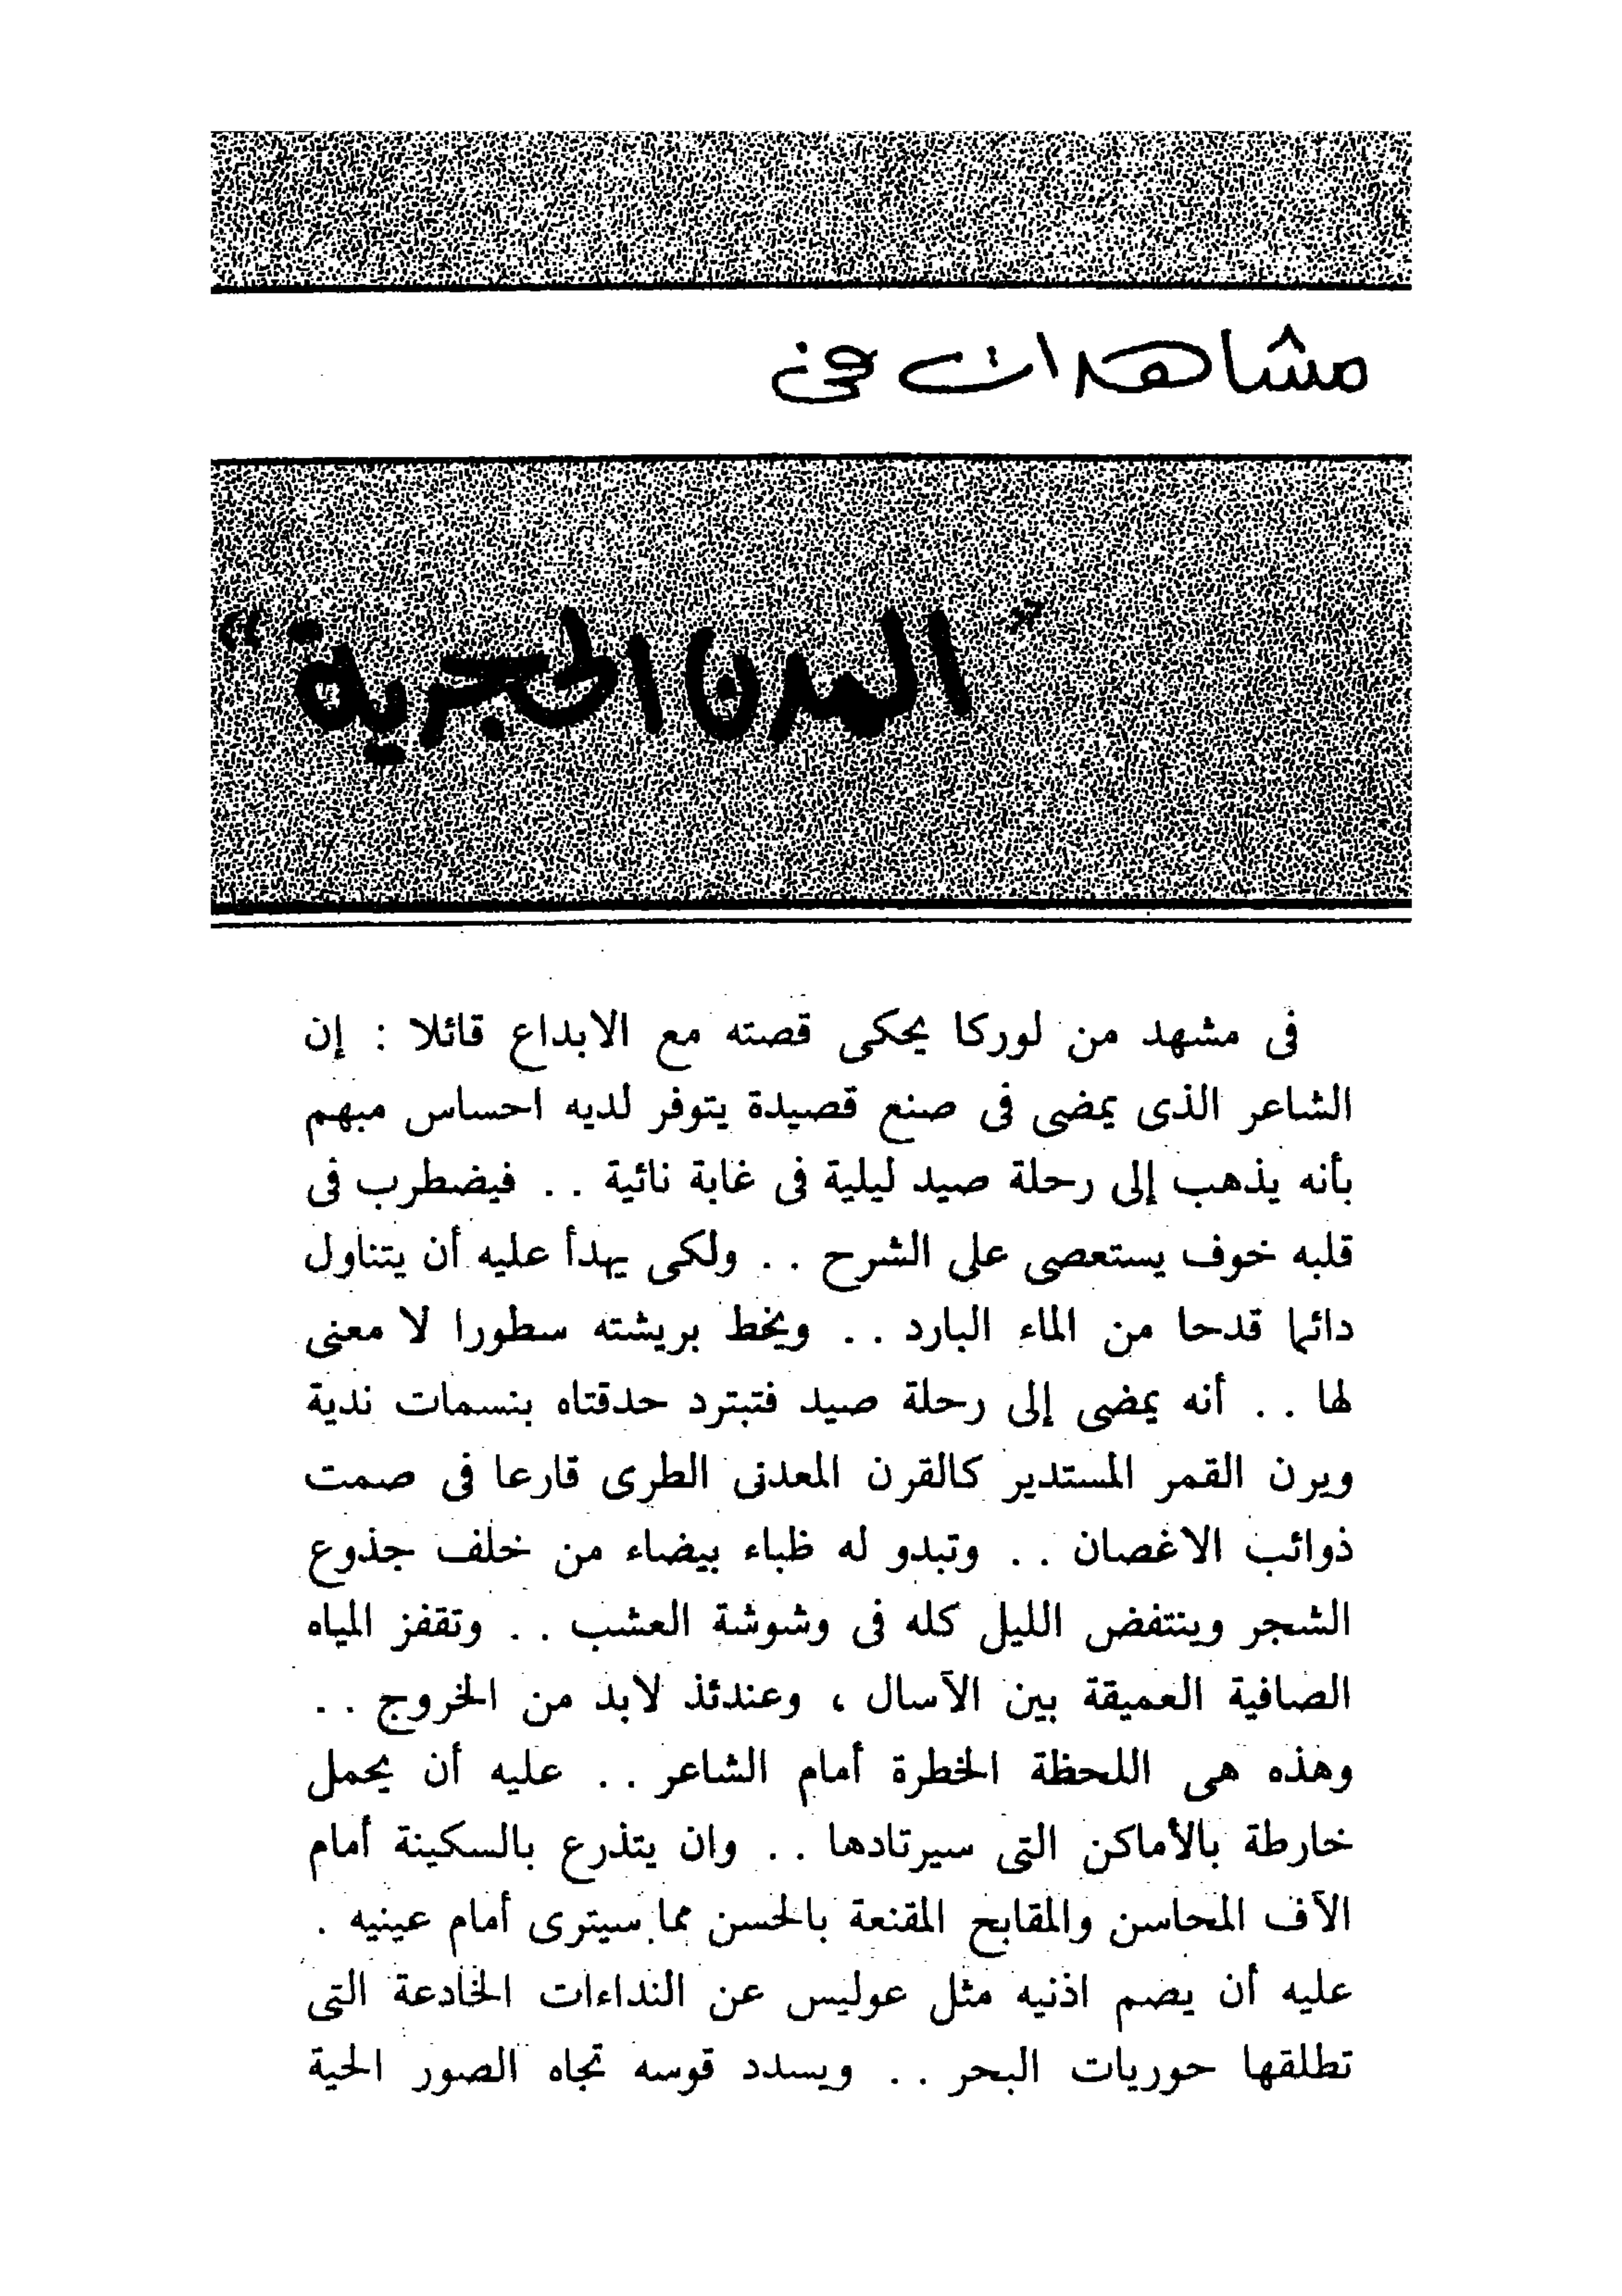 مشاهدات فى
"المدن الحجرية"
فى مشهد من لوركا يحكى قصته مع الابداع قائلا : إن
الشاعر الذى يمضى فى صنع قصيدة يتوفر لديه احساس مبهم
بأنه يذهب إلى رحلة صيد ليلية فى غابة نائية . . فيضطرب فى
قلبه خوف يستعصى على الشرح . . ولكى يهدأ عليه أن يتناول
دائما قدحا من الماء البارد . . ويخط بريشته سطورا لا معنى
لها . . أنه يمضى إلى رحلة صيد فتبترد حدقتاه بنسمات ندية
ويرن القمر المستدير كالقرن المعدنى الطرى قارعا فى صمت
ذوائب الاغصان . . وتبدو له ظباء بيضاء من خلف جذوع
الشجر وينتفض الليل كله فى وشوشة العشب . . وتقفز المياه
الصافية العميقة بين الآسال ، وعندئذ لابد من الخروج . .
وهذه هى اللحظة الخطرة أمام الشاعر . . عليه أن يحمل
خارطة بالأماكن التى سيرتادها . . وان يتذرع بالسكينة أمام
الآف المحاسن والمقابح المقنعة بالحسن مما سيترى أمام عينيه .
عليه أن يصم اذنيه مثل عوليس عن النداءات الخادعة التى
تطلقها حوريات البحر . . ويسدد قوسه تجاه الصور الحية